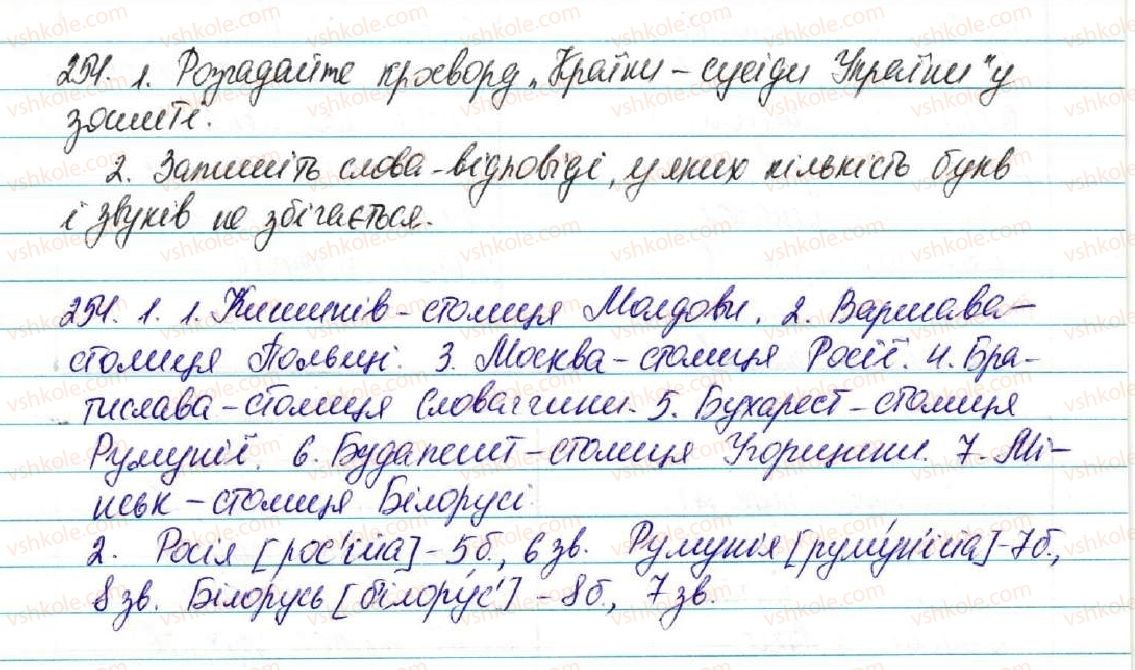 254. 1. Розгадайте кросворд „Країни – сусіди України" у
зошиті.
2. Запишіть слова-відповіді, у яких кількість букв
і звуків не збігається.
254. 1. 1. Кишинів – столиця Молдови. 2. Варшава –
столиця Польщі. 3. Москва – столиця Росії. 4. Бра-
тислава – столиця Словаччини. 5. Бухарест – столиця
Румунії. 6. Будапешт – столиця Угорщини. 7. Мі-
нськ – столиця Білорусі.
2. Росія [рос'ійа] – 5б., 6 зв. Румунія [руму́н'ійа] – 7б.,
8 зв. Білорусь [б'ілору́с'] – 8б., 7 зв.
vshkole.com